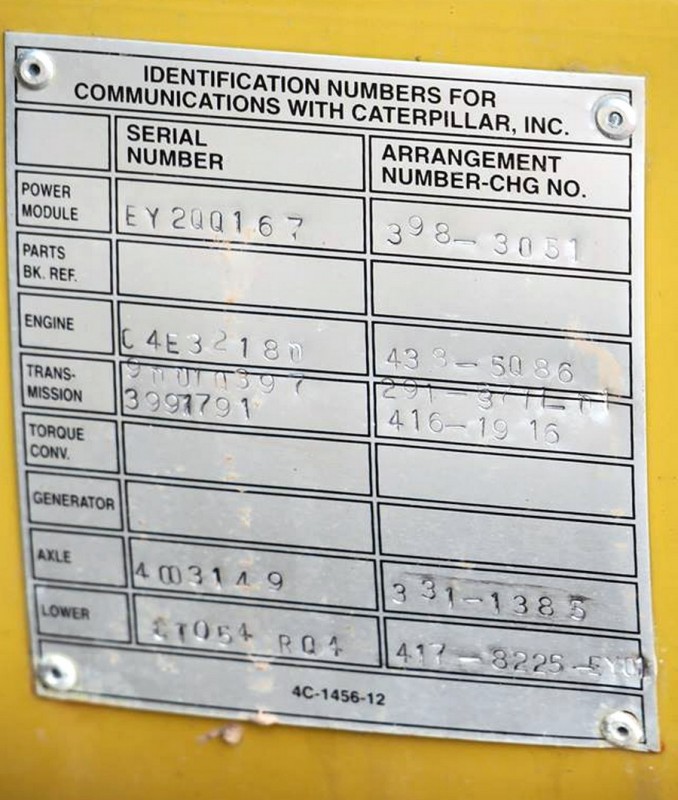 IDENTIFICATION NUMBERS FOR
COMMUNICATIONS WITH CATERPILLAR, INC.
SERIAL
NUMBER
ARRANGEMENT
NUMBER-CHG NO.
POWER
MODULE
EY2QQ167
398-3051
PARTS
BK. REF.
ENGINE
C4E32180
433-5086
TRANS-
MISSION
3991791
416-1916
TORQUE
CONV.
GENERATOR
AXLE
331-1385
LOWER
RQ4
417-8225
4C-1456-12